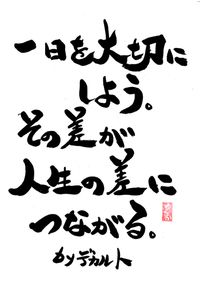 一日を大切に
しよう。
その差が
人生の差に
つながる。
byデカルト